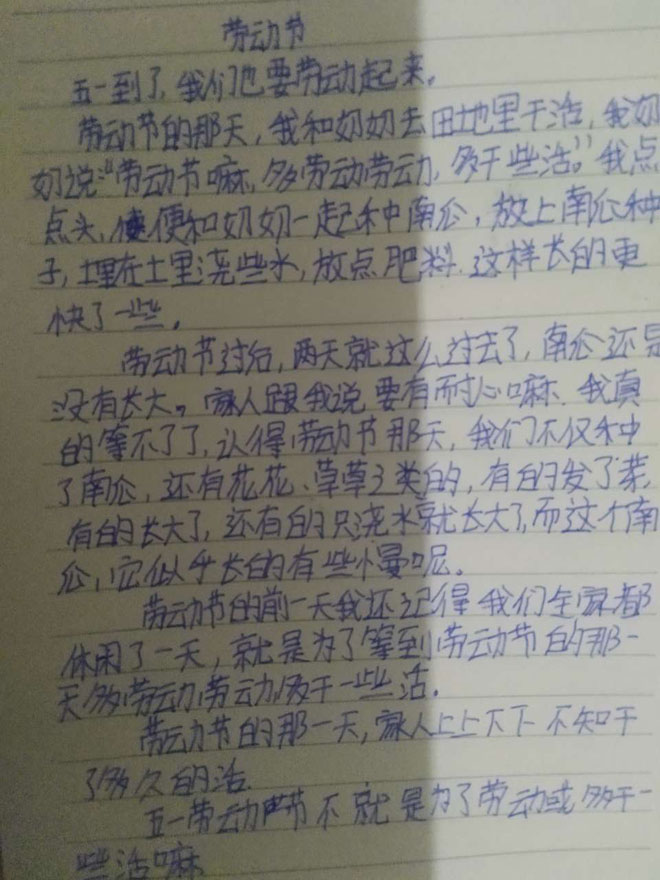 劳动节
五一到了,我们也要劳动起来。
劳动节的那天,我和奶奶去田地里干活,我奶
奶说:“劳动节嘛,多劳动劳动,多干些活。”我点
点头,便和奶奶一起种南瓜,放上南瓜种
子,埋在土里浇些水,放点肥料.这样长的更
快了一些。
劳动节过后,两天就这么过去了,南瓜还是
没有长大。家人跟我说要有耐心嘛.我真
的等不了了,认得劳动节那天,我们不仅种
了南瓜,还有花花、草草之类的,有的发了芽,
有的长大了,还有的只浇水就长大了,而这个南
瓜,它似乎长的有些慢呢。
劳动节的前一天我还记得我们全家都
休闲了一天,就是为了等到劳动节的那一
天多劳动劳动多干一些活.
劳动节的那一天,家人上上下下不知干
了多久的活.
五一劳动节不就是为了劳动或多干一
些活嘛